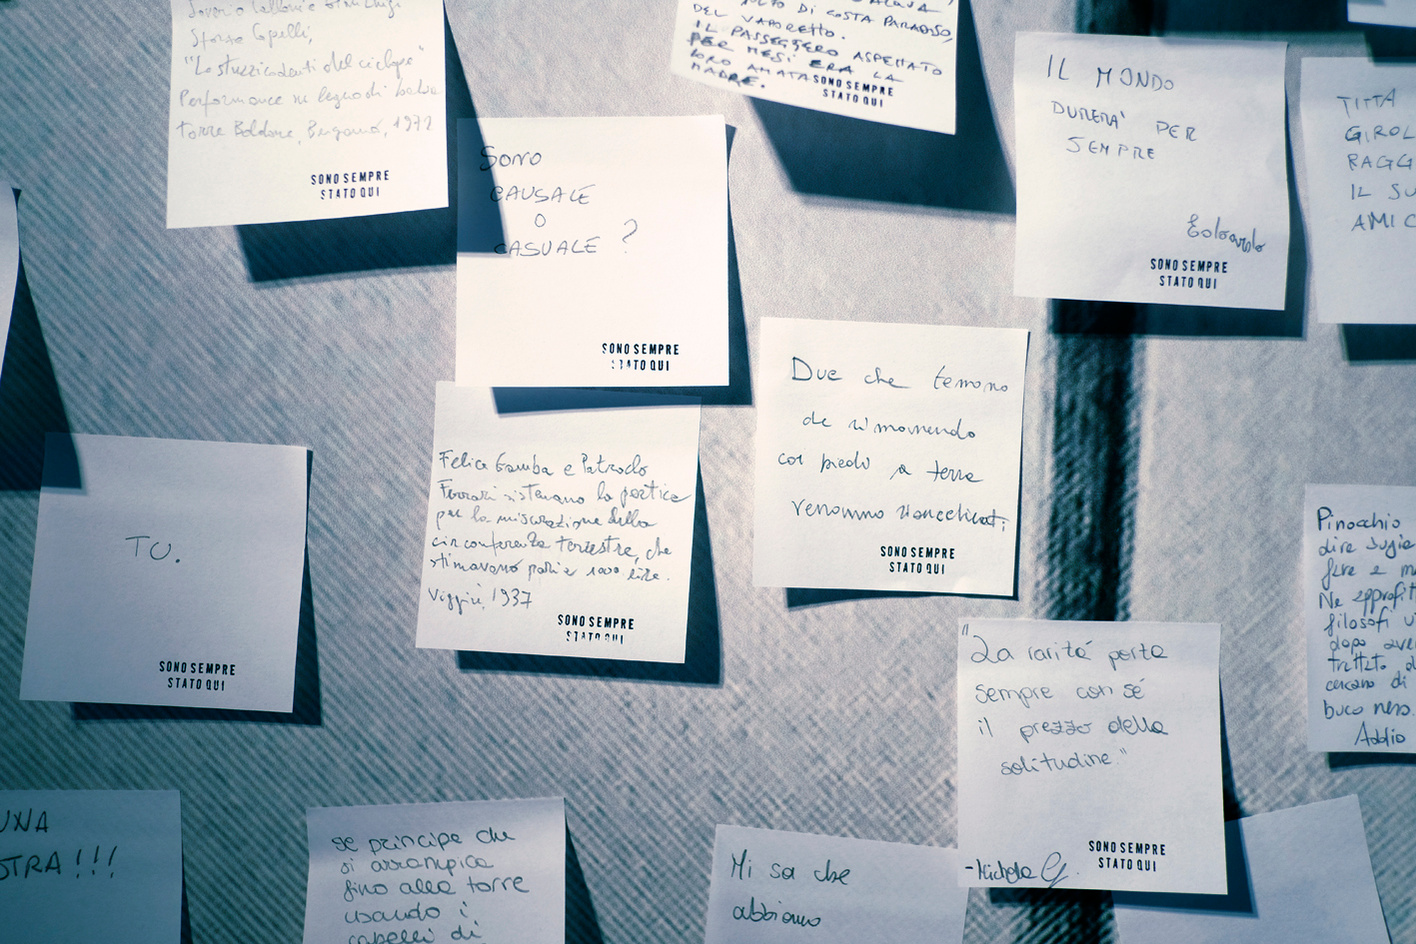 Sforza Capelli,
"Lo stuzzicadenti del ciclope"
Performance in legno di balsa
Torre Boldone, Bergamo, 1972
SONO SEMPRE
STATO QUI
DI COSTA PARADISO,
DEL VAPORETTO.
IL PASSEGGERO ASPETTATO
PER MESI ERA LA
LORO AMATA
MADRE.
SONO SEMPRE
STATO QUI
IL MONDO
DURERA' PER
SEMPRE
Edoardo
SONO SEMPRE
STATO QUI
TITTA
GIROL
RAGG
IL SU
AMIC
Sono
CAUSALE
O
CASUALE ?
SONO SEMPRE
STATO QUI
Due che temono
de rimanendo
coi piedi a terra
verranno
SONO SEMPRE
STATO QUI
TU.
SONO SEMPRE
STATO QUI
Felice Gamba e Patroclo
Ferrari sistemano la pertica
per la misurazione della
circonferenza terrestre, che
stimavano pari a 1000 litri.
Viggiù, 1937
SONO SEMPRE
STATO QUI
Pinocchio
dire bugie
fere e m
Ne approfit
filosofi u
dopo aver
trattato d
cercano di
buco nero.
Addio
"La rarità porta
sempre con sé
il prezzo della
solitudine."
- Michela G.
SONO SEMPRE
STATO QUI
UNA
STRA!!!
se principe che
si arrampica
fino alla torre
usando i
capelli di
Mi sa che
abbiamo